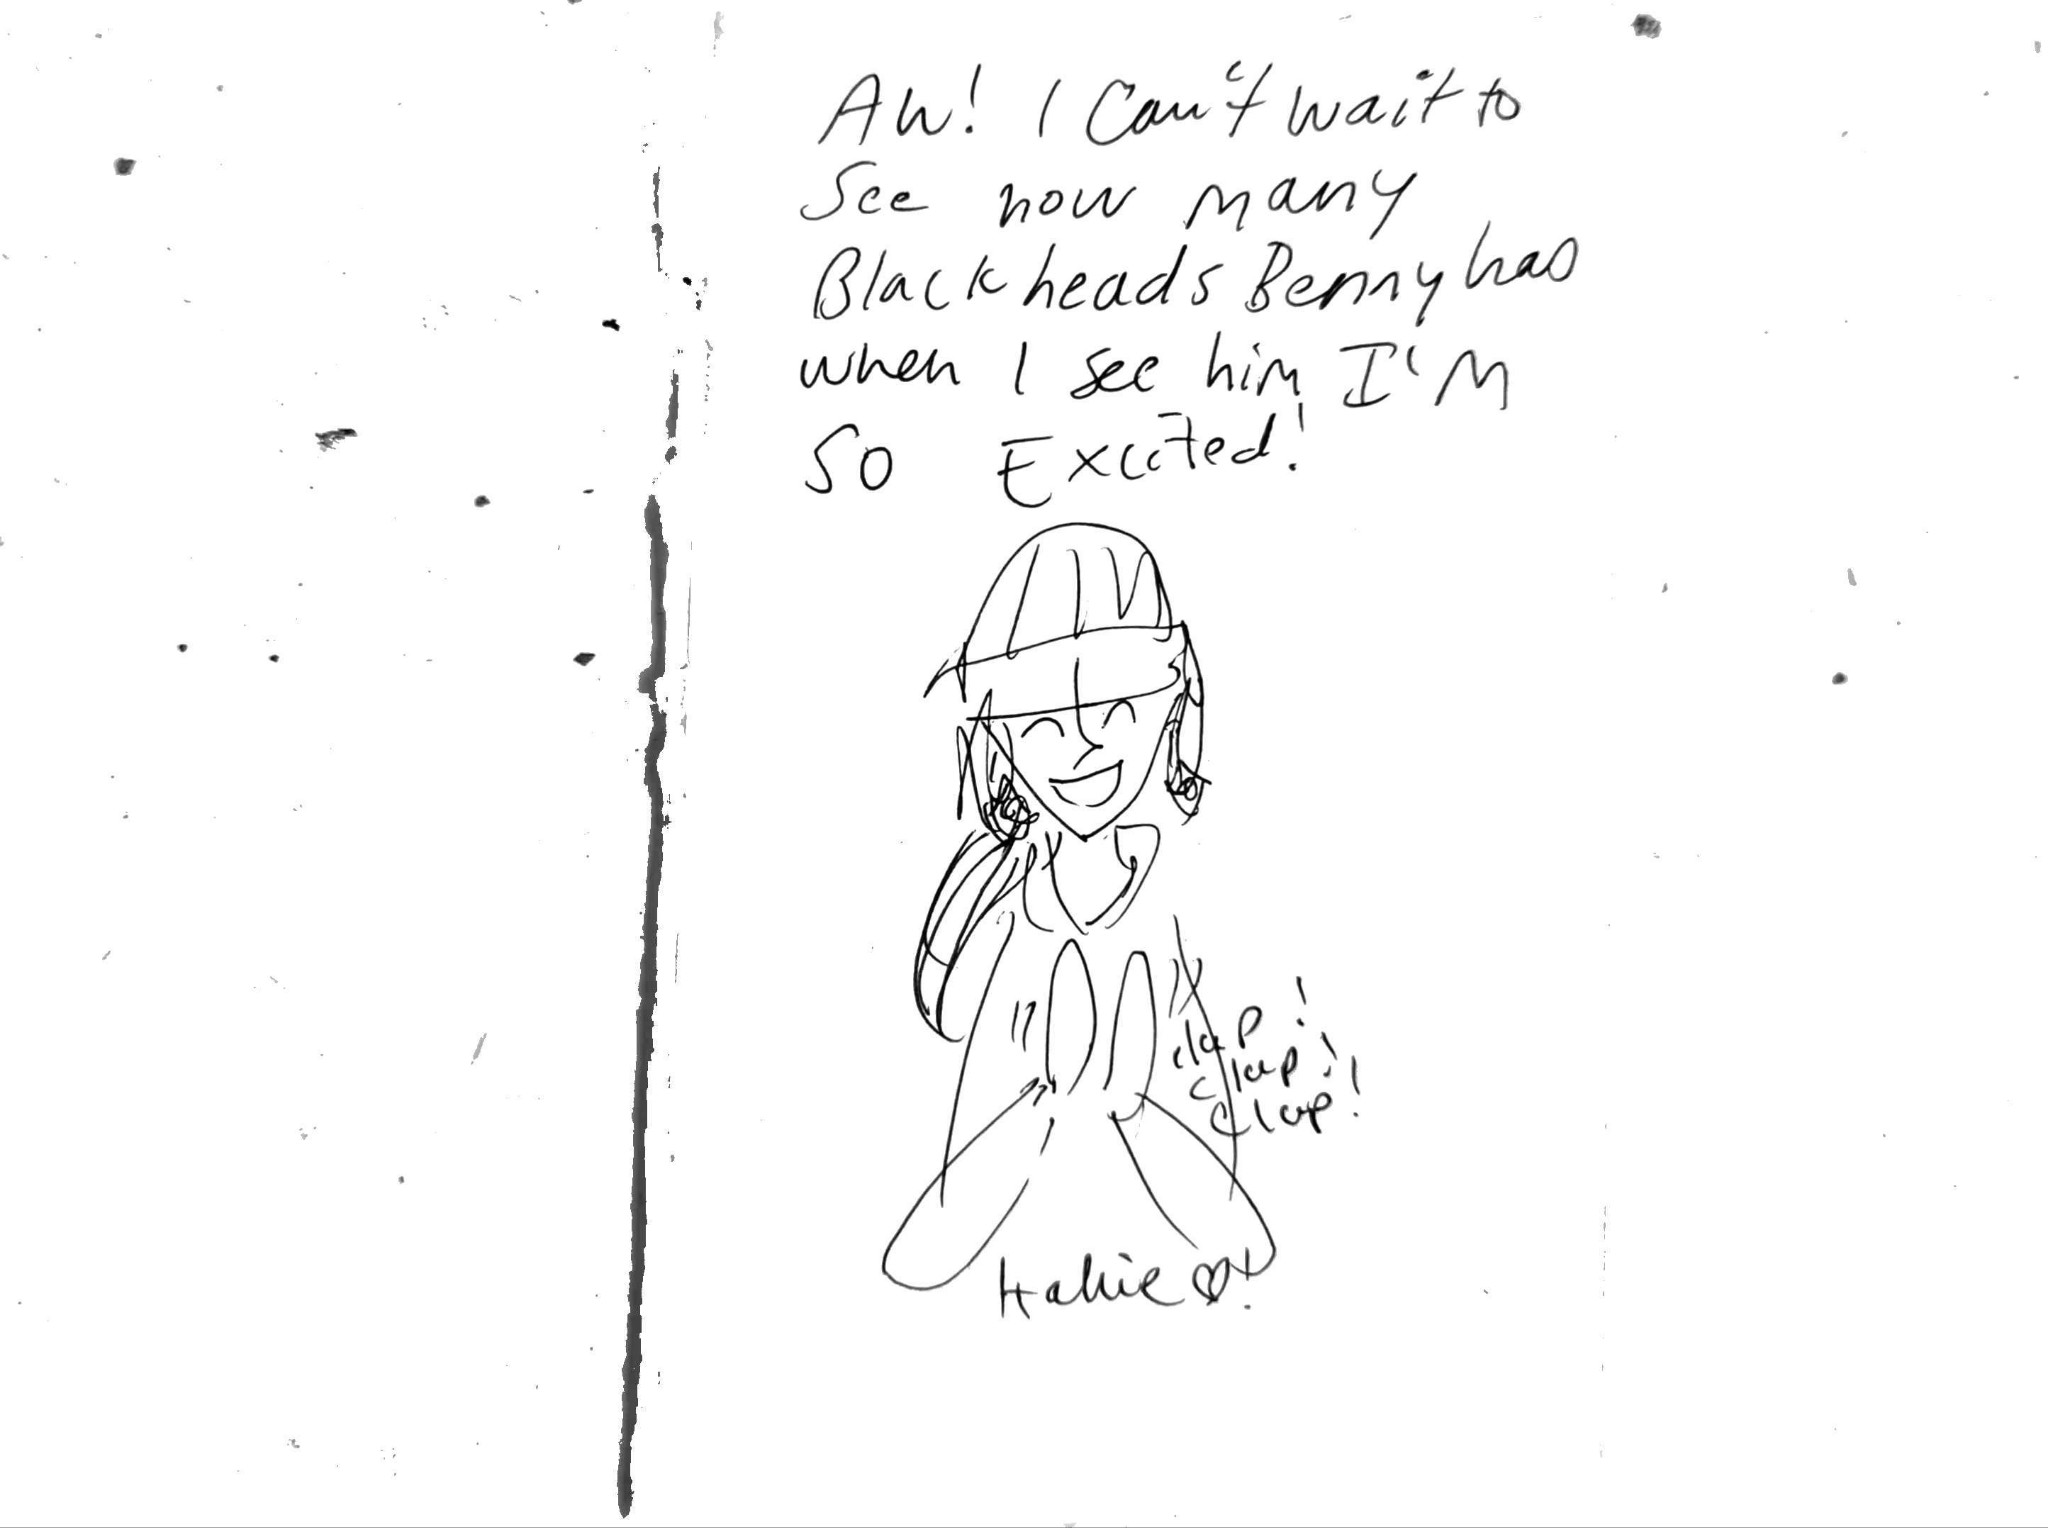 Aw! I Can't wait to
See how many
Blackheads Benny has
when I see him I'M
So Excited!
clap!
clap!
clap!
Hallie ♡!